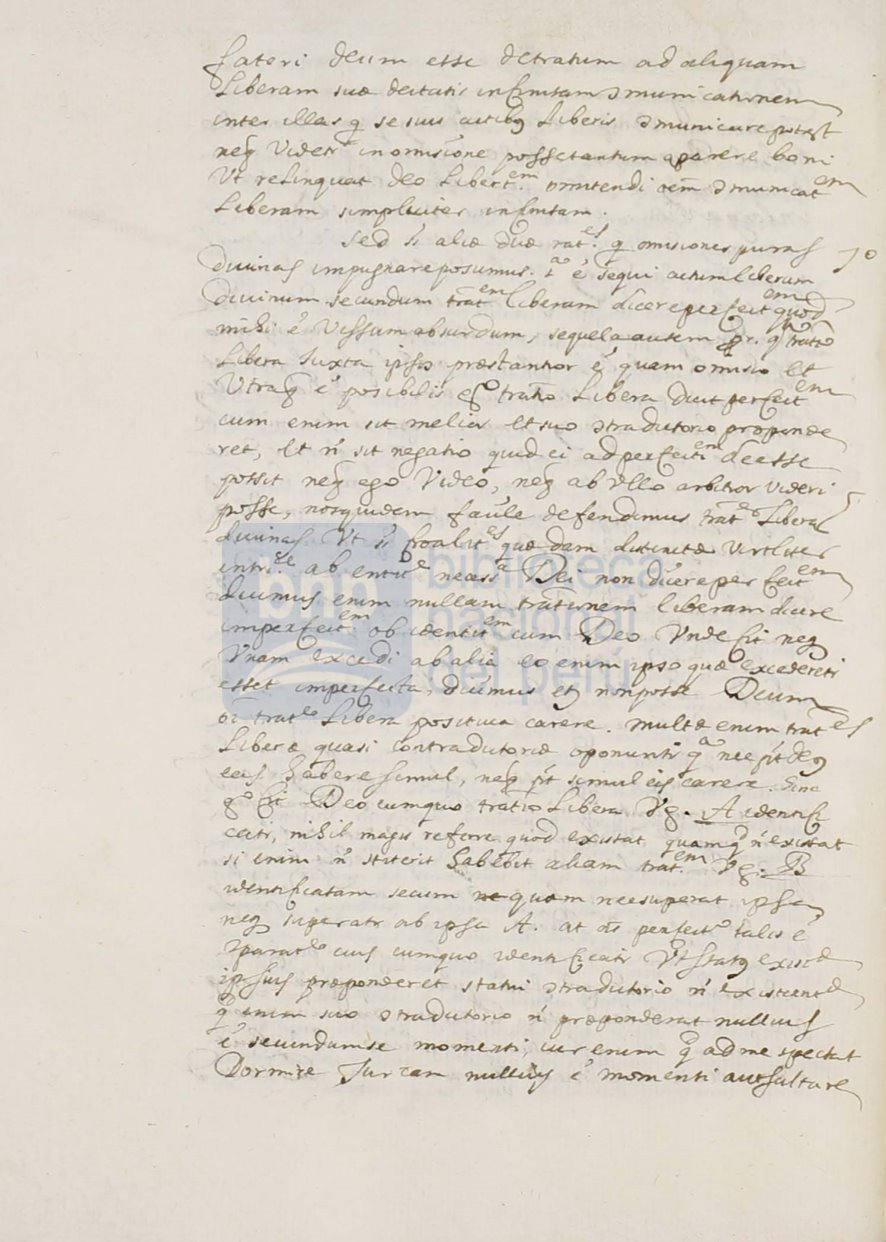 fateri deum esse detratum ad aliquam
liberam suæ deitatis infinitam ɔmunicationem
inter illas q se suis actibꝫ liberis ɔmunicare potest
neq videtr in omisione posse tantum aparere boni
Ut relinquat deo libertem omitendi ɔmunicatem
Liberam simpliciter infinitam.
Sed si aliæ duæ rates q omisiones puras
divinas impugnare posumus. 1ª é sequi actum liberum
divinum secundum tratem liberam dicere perfectem quod
mihi é vissum absurdum, sequela autem pr. q tratio
Libera Iuxta ipsos præstantior é quam omisio et
Utraq é posibilis ergo tratio Libera dicit perfectem
cum enim sit melior et suo ɔtradictorio præponde
ret, et ń sit negatio quid ei ad perfectem deesse
possit neq ego video, neq ab ullo arbitror videri
posse, nos quidem facile defendimus trates Liberas
divinas Ut si froalites quædam distinctæ virtliter
intrice ab entite necessa Dei non dicere perfectem
dicimus enim nullam trationem liberam dicere
imperfectem ob identitem cum Deo Unde fit neq
Unam excedi ab alia eo enim ipso quæ excederetr
esset imperfecta, dicimus etq non posse Deum
oi trate Libera positiva carere. multæ enim trates
Liberæ quasi contradictoriæ oponuntr qª nec pt deq
eas habere simul, neq pt simul eis carere. hinc
gº fit Deo cumquo tratio Libera Vg. A identifi
cetr, nihil magis referre quod existat quam q ń existat
si enim ń stiterit habebit aliam tratem Vg. B
identificatam secum quam nec superat ipsa
neq superatr ab ipsa A. at ois perfectio talis é
ɔparate cuiꝫ cumquo identificatr Ut statꝫ existe
ipsius præponderet statui ɔtradictorio ń existente
q enim suo ɔtradictorio ń præponderat nullius
é secundum se momenti, cur enim q ad me spectat
Dormire nullius é momenti